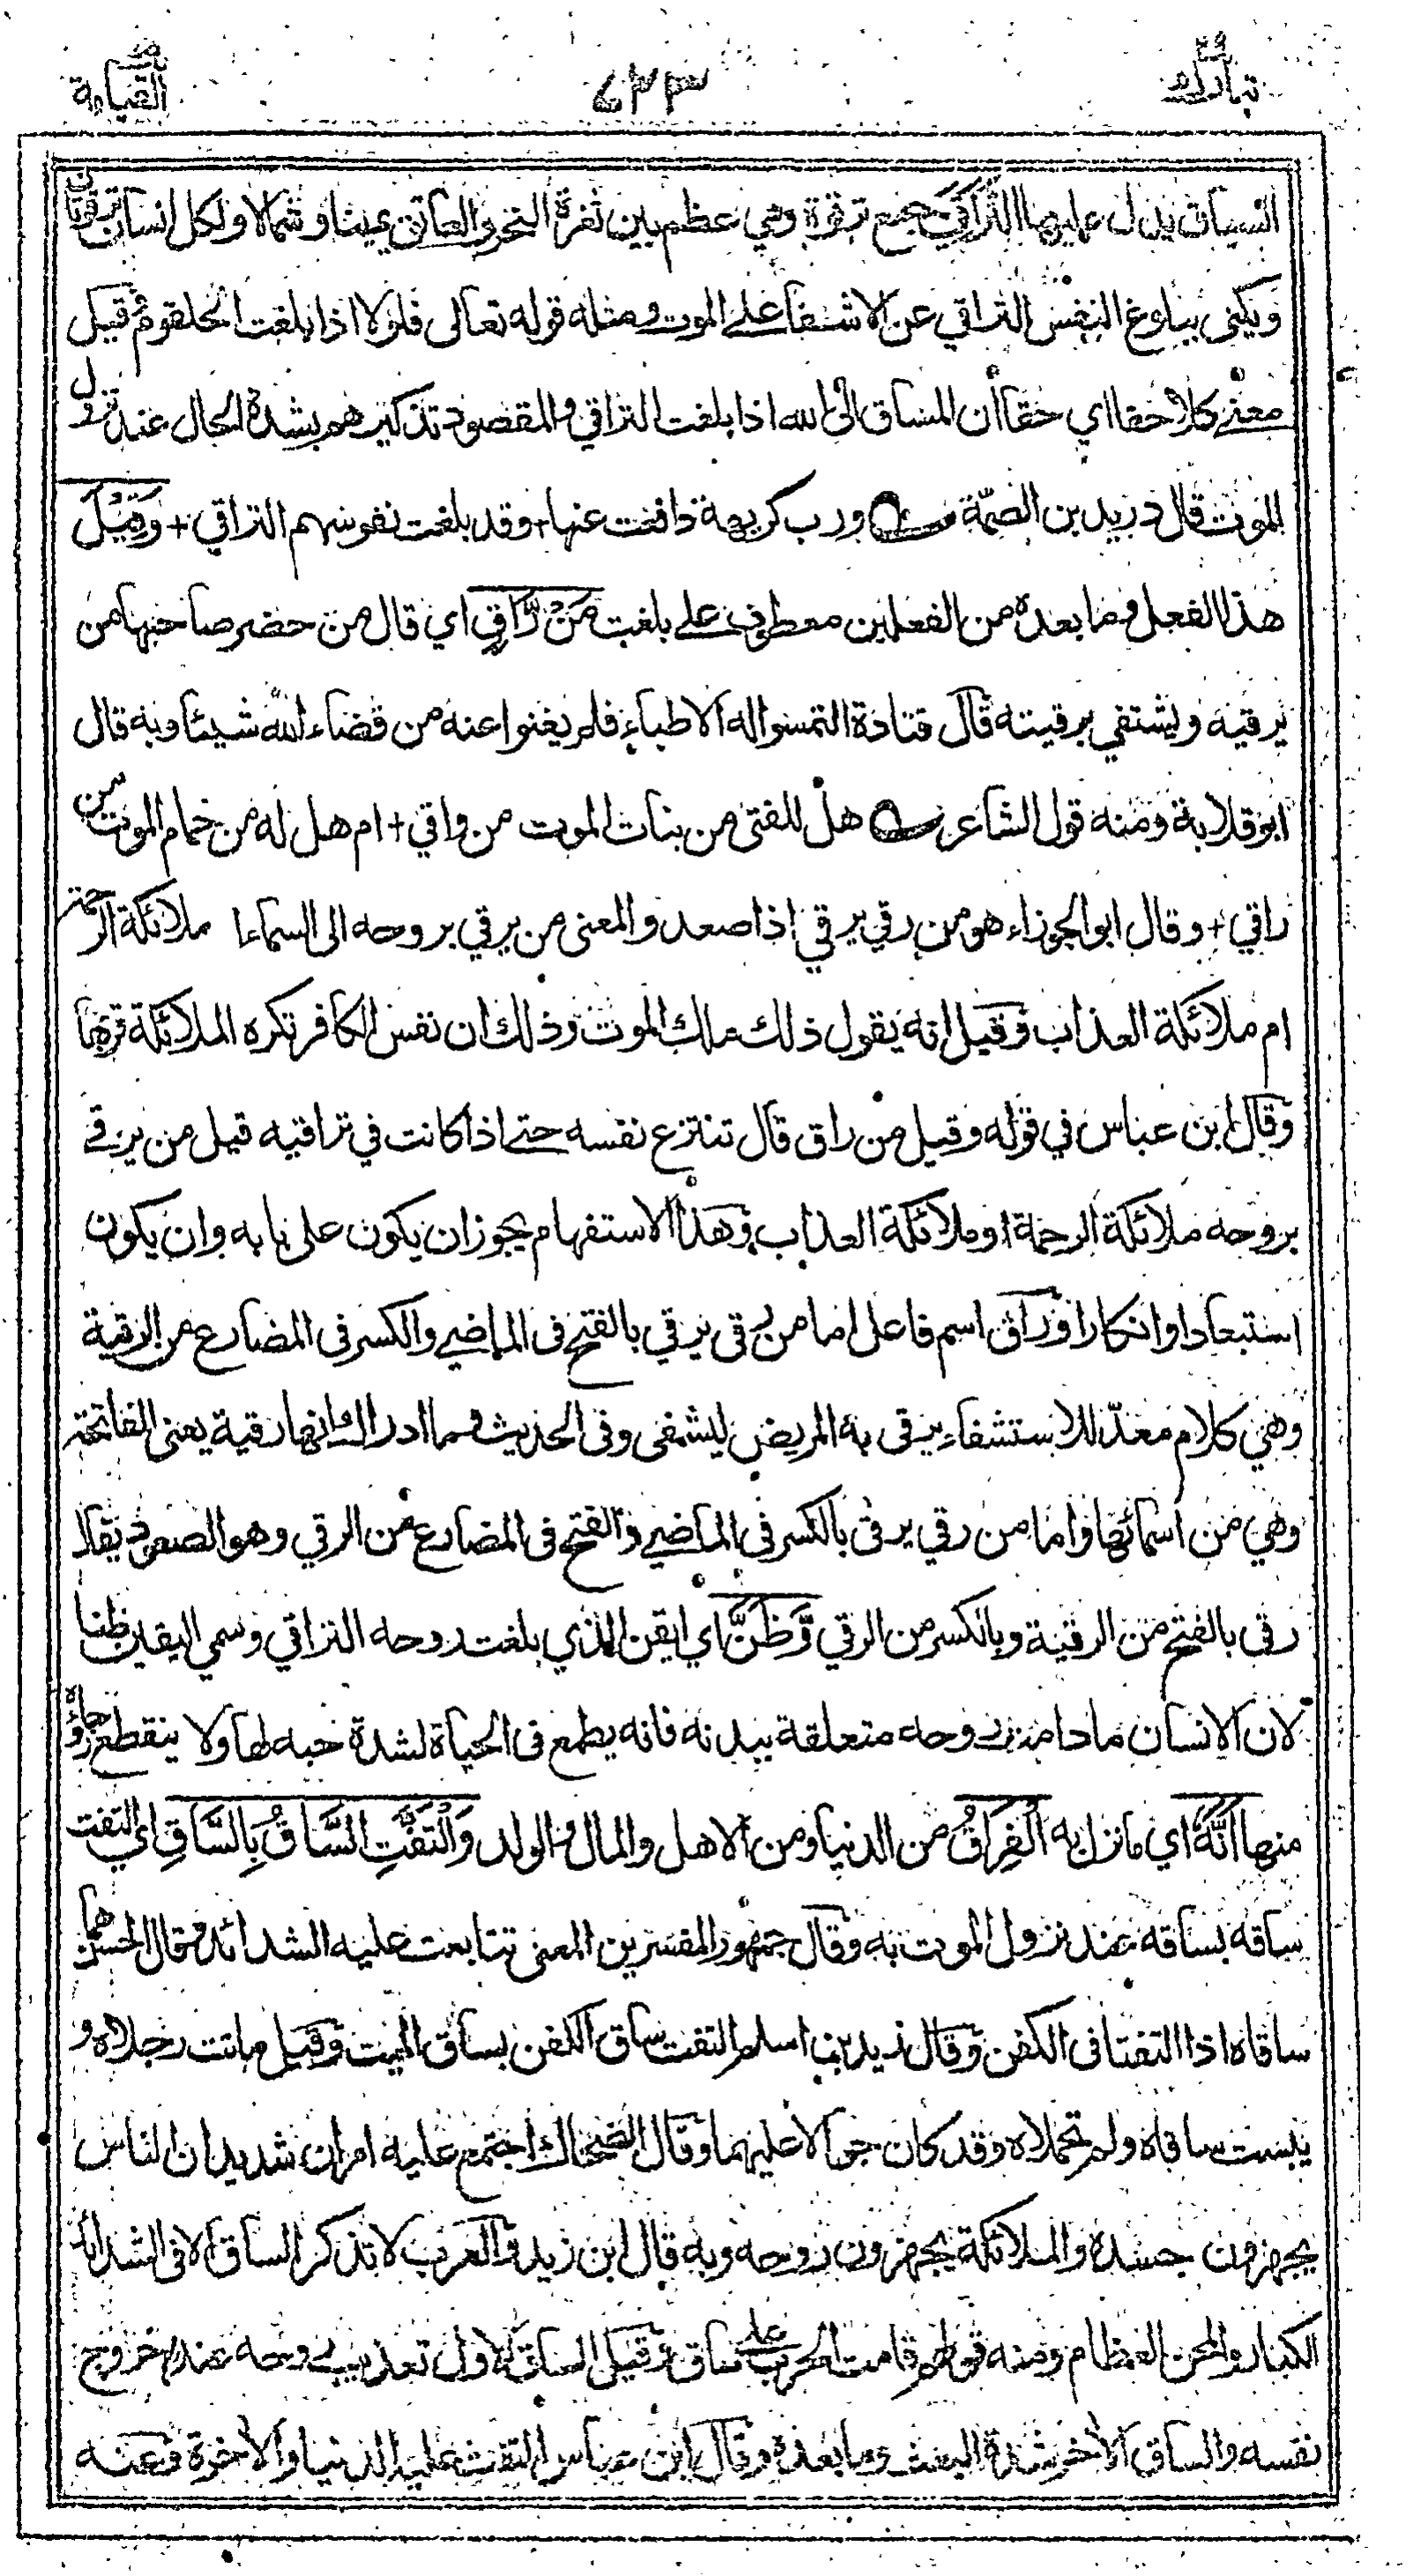 تبارك ٢٩
٤٣٣
القيامة ٧٥
السياق يدل عليها التَّرَاقِيَ جمع ترقوة وهي عظم بين ثغرة النحر والعاتق يمينا وشمالا ولكل انسان ترقوتان
ويكنى ببلوغ النفس التراقي عن الاشفاء على الموت ومثله قوله تعالى فلولا اذا بلغت الحلقوم وقيل
معنى كلا حقا اي حقا أن المساق الى الله اذا بلغت التراقي والمقصود تذكيرهم بشدة الحال عند نزول
الموت قال دريد بن الصمّة ورب كريهة دافعت عنها + وقد بلغت نفوسهم التراقي + وَقِيْلَ
هذا الفعل وما بعده من الفعلين معطوف على بلغت مَنْ رَّاقٍ اي قال من حضر صاحبها من
يرقيه ويشتفي برقيته قال قتادة التمسوا له الاطباء فلم يغنوا عنه من قضاء الله شيئا وبه قال
ابو قلابة ومنه قول الشاعر هل للفتى من بنات الموت من واقي + ام هل له من حمام الموت من
راقي + وقال ابو الجوزاء هو من رقي يرقي اذا صعد والمعنى من يرقي بروحه الى السماء ا ملائكة الرحمة
ام ملائكة العذاب وقيل انه يقول ذلك ملك الموت وذلك ان نفس الكافر تكره الملائكة قربها
وقال ابن عباس في قوله وقيل من راق قال تنتزع نفسه حتى اذا كانت في تراقيه قيل من يرقى
بروحه ملائكة الرحمة او ملائكة العذاب وهذا الاستفهام يجوز ان يكون على بابه وان يكون
استبعادا وانكارا وراق اسم فاعل اما من رقى يرقي بالفتح فى الماضي والكسر فى المضارع من الرقية
وهي كلام معدّ للاستشفاء يرقى به المريض ليشفى وفى الحديث وما ادراك انها رقية يعنى الفاتحة
وهي من اسمائها واما من رقي يرقى بالكسر في الماضي والفتح فى المضارع من الرقي وهو الصعود يقال
رقى بالفتح من الرقية وبالكسر من الرقي وَّظَنَّ اي ايقن الذي بلغت روحه التراقي وسمي اليقين ظنا
لان الانسان ما دامت روحه متعلقة ببدنه فانه يطمع فى الحياة لشدة حبه لها ولا ينقطع رجاؤه
منها اَنَّهُ اي ما نزل به الْفِرَاقُ من الدنيا ومن الاهل والمال والولد وَالْتَفَّتِ السَّاقُ بِالسَّاقِ اي التفت
ساقه بساقه عند نزول الموت به وقال جمهور المفسرين المعنى تتابعت عليه الشدائد وقال الحسن هما
ساقاه اذا التفتا فى الكفن وقال زيد بن اسلم التفت ساق الكفن بساق الميت وقيل ماتت رجلاه و
يبست ساقاه ولم تحملاه وقد كان جوالا عليهما وقال الضحاك اجتمع عليه امران شديدان الناس
يجهزون جسده والملائكة يجهزون روحه وبه قال ابن زيد والعرب لا تذكر الساق الا فى الشدائد
الكبار والمحن العظام ومنه قولهم قامت الحرب على ساق وقيل الساق الاول تعذيب روحه عند خروج
نفسه والساق الآخر شدة البعث وما بعده وقال ابن عباس التفت عليه الدنيا والآخرة وعنه